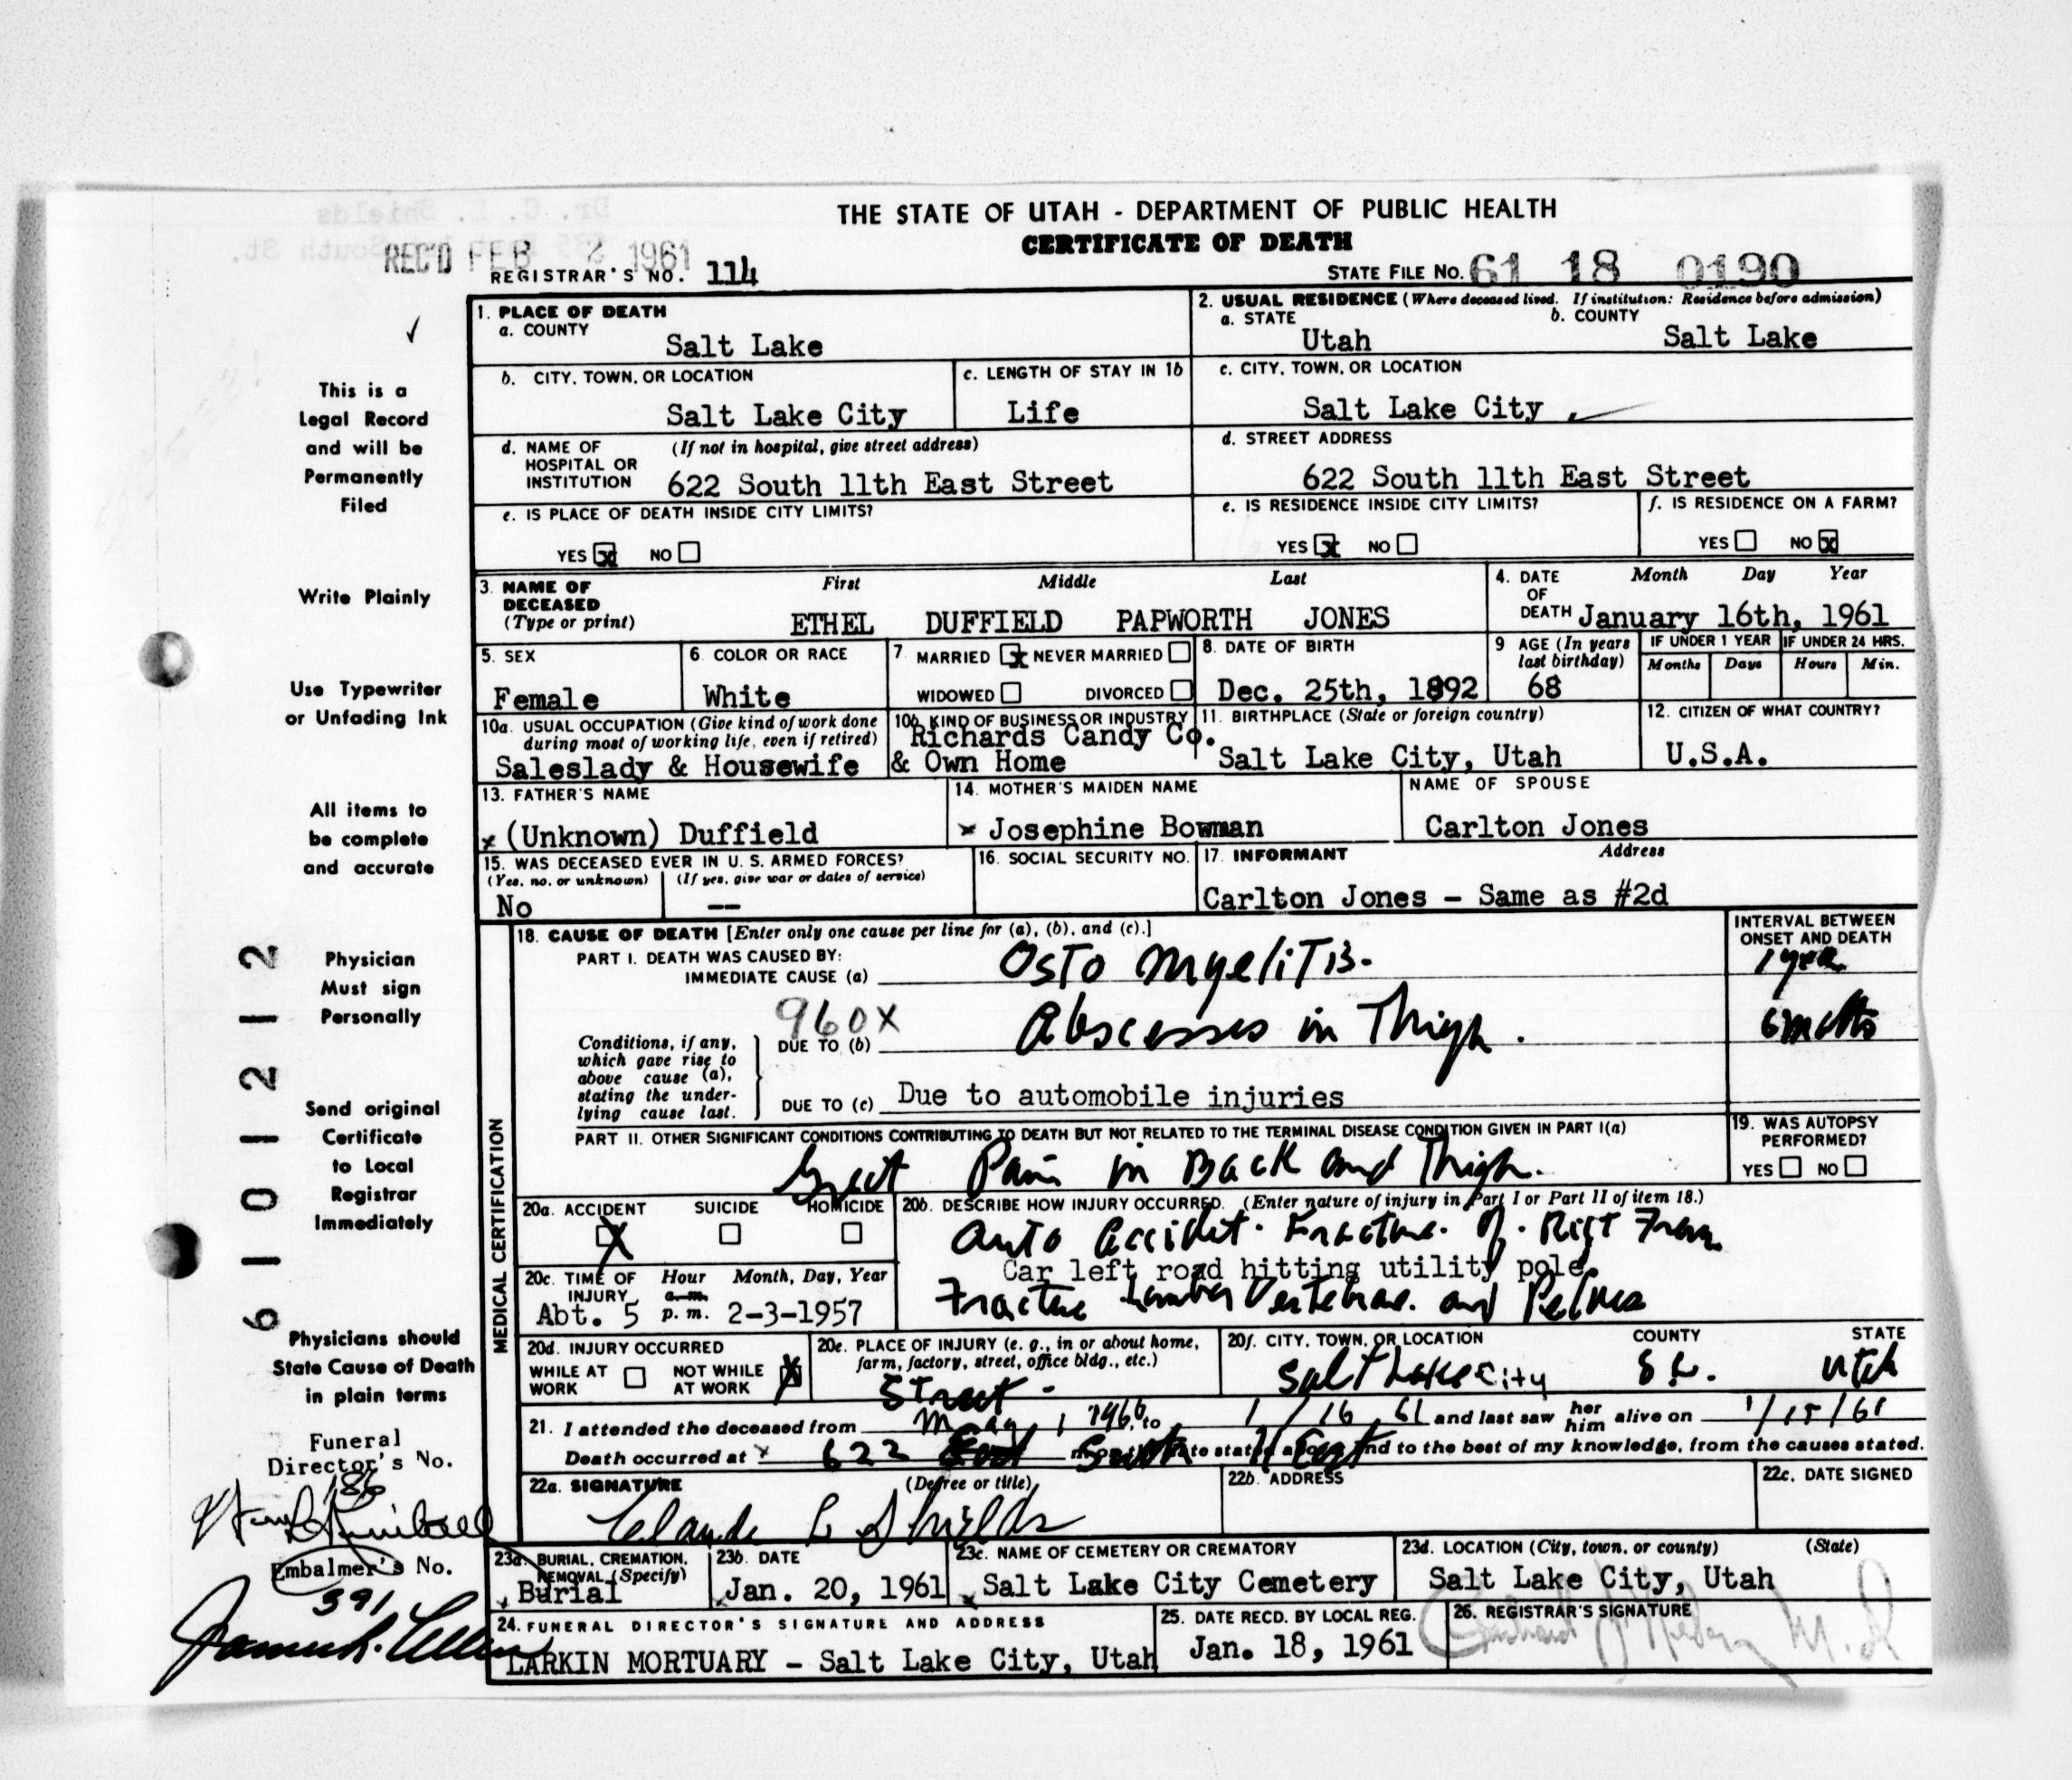 THE STATE OF UTAH - DEPARTMENT OF PUBLIC HEALTH
CERTIFICATE OF DEATH
REC'D FEB 2 1961
REGISTRAR'S NO. 114
STATE FILE NO. 61 18 0190
1. PLACE OF DEATH
a. COUNTY
Salt Lake
2. USUAL RESIDENCE (Where deceased lived. If institution: Residence before admission)
a. STATE b. COUNTY
Utah Salt Lake
b. CITY, TOWN, OR LOCATION
Salt Lake City
c. LENGTH OF STAY IN 1b
Life
c. CITY, TOWN, OR LOCATION
Salt Lake City
d. NAME OF HOSPITAL OR INSTITUTION (If not in hospital, give street address)
622 South 11th East Street
d. STREET ADDRESS
622 South 11th East Street
e. IS PLACE OF DEATH INSIDE CITY LIMITS?
YES x NO
e. IS RESIDENCE INSIDE CITY LIMITS?
YES x NO
f. IS RESIDENCE ON A FARM?
YES NO x
3. NAME OF DECEASED (Type or print)
First Middle Last
ETHEL DUFFIELD PAPWORTH JONES
4. DATE OF DEATH Month Day Year
January 16th, 1961
5. SEX
Female
6. COLOR OR RACE
White
7. MARRIED x NEVER MARRIED
WIDOWED DIVORCED
8. DATE OF BIRTH
Dec. 25th, 1892
9 AGE (In years last birthday)
68
IF UNDER 1 YEAR IF UNDER 24 HRS.
Months Days Hours Min.
10a. USUAL OCCUPATION (Give kind of work done during most of working life, even if retired)
Saleslady & Housewife
10b. KIND OF BUSINESS OR INDUSTRY
Richards Candy Co.
& Own Home
11. BIRTHPLACE (State or foreign country)
Salt Lake City, Utah
12. CITIZEN OF WHAT COUNTRY?
U.S.A.
13. FATHER'S NAME
x (Unknown) Duffield
14. MOTHER'S MAIDEN NAME
x Josephine Bowman
NAME OF SPOUSE
Carlton Jones
15. WAS DECEASED EVER IN U. S. ARMED FORCES?
(Yes, no, or unknown) (If yes, give war or dates of service)
No --
16. SOCIAL SECURITY NO.
17. INFORMANT Address
Carlton Jones - Same as #2d
MEDICAL CERTIFICATION
18. CAUSE OF DEATH [Enter only one cause per line for (a), (b), and (c).]
INTERVAL BETWEEN ONSET AND DEATH
PART I. DEATH WAS CAUSED BY:
IMMEDIATE CAUSE (a) Osto Myelitis - 1 year
960X
Conditions, if any, which gave rise to above cause (a), stating the underlying cause last.
DUE TO (b) Abscesses in Thigh. 6 months
DUE TO (c) Due to automobile injuries
PART II. OTHER SIGNIFICANT CONDITIONS CONTRIBUTING TO DEATH BUT NOT RELATED TO THE TERMINAL DISEASE CONDITION GIVEN IN PART I(a)
Great Pain in Back and Thigh.
19. WAS AUTOPSY PERFORMED?
YES NO
20a. ACCIDENT SUICIDE HOMICIDE
X
20b. DESCRIBE HOW INJURY OCCURRED. (Enter nature of injury in Part I or Part II of item 18.)
Auto accident. Fracture of
Car left road hitting utility pole.
Fracture Lumber Vertebrae. and Pelvis
20c. TIME OF INJURY Hour a.m. p.m. Month, Day, Year
Abt. 5 2-3-1957
20d. INJURY OCCURRED
WHILE AT WORK NOT WHILE AT WORK X
20e. PLACE OF INJURY (e. g., in or about home, farm, factory, street, office bldg., etc.)
Street -
20f. CITY, TOWN, OR LOCATION COUNTY STATE
Salt Lake City S L. Utah
21. I attended the deceased from May 1 1960, to 1 / 16, 61 and last saw her him alive on 1/15/61
Death occurred at x 622 South 11 East and to the best of my knowledge, from the causes stated.
22a. SIGNATURE (Degree or title)
Claude L Shields
22b. ADDRESS
22c. DATE SIGNED
23a. BURIAL, CREMATION, REMOVAL (Specify)
Burial
23b. DATE
Jan. 20, 1961
23c. NAME OF CEMETERY OR CREMATORY
Salt Lake City Cemetery
23d. LOCATION (City, town, or county) (State)
Salt Lake City, Utah
24. FUNERAL DIRECTOR'S SIGNATURE AND ADDRESS
LARKIN MORTUARY - Salt Lake City, Utah
25. DATE RECD. BY LOCAL REG.
Jan. 18, 1961
26. REGISTRAR'S SIGNATURE
M.D
This is a
Legal Record
and will be
Permanently
Filed
Write Plainly
Use Typewriter
or Unfading Ink
All items to
be complete
and accurate
Physician
Must sign
Personally
Send original
Certificate
to Local
Registrar
Immediately
Physicians should
State Cause of Death
in plain terms
Funeral
Director's No.
186
Embalmer's No.
391
61012112